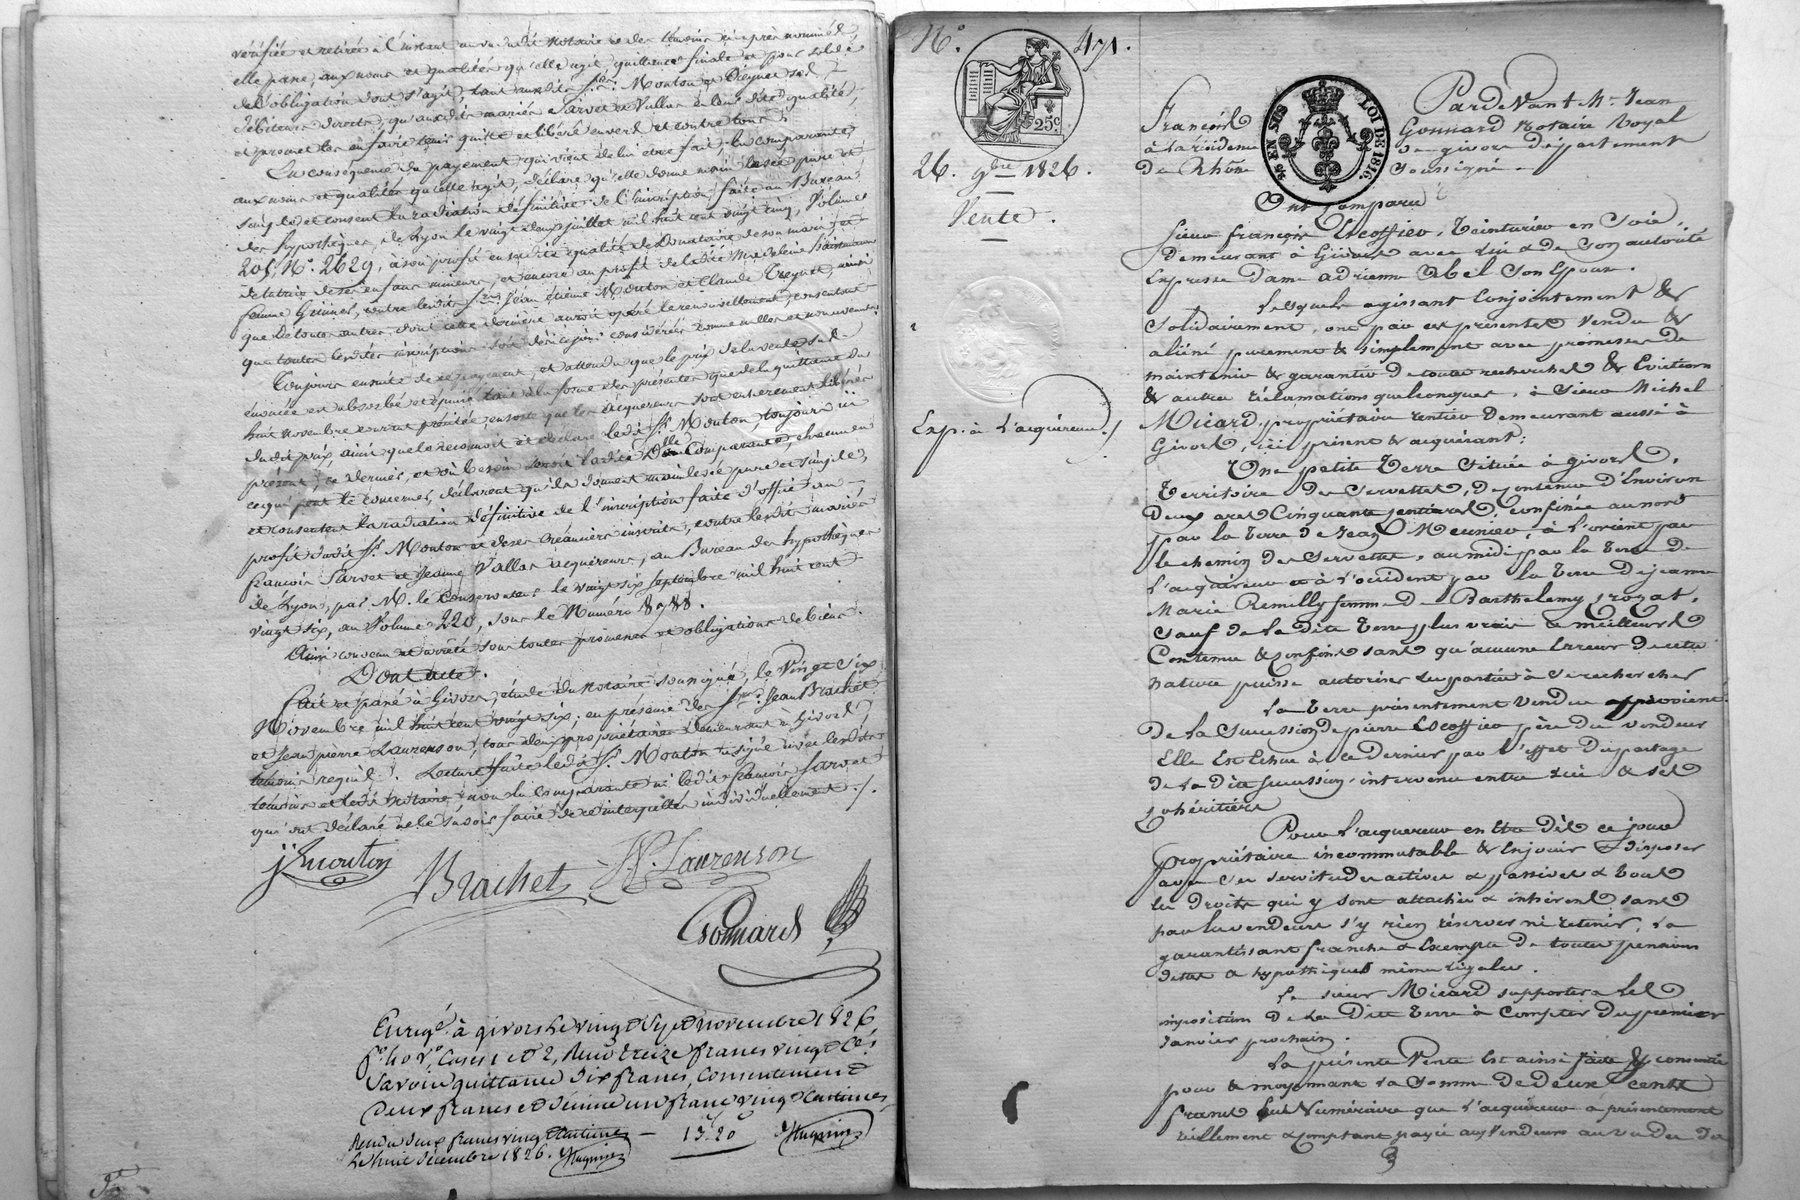 vérifiée et retirée à l'instant au vu dudit notaire et des témoins ci après nommés,
elle passe, aux noms et qualités qu'elle agit, quittance finale et pour solde
de l'obligation dont s'agit, tant auxdits Srs. Mouton et Treynet seul
débiteurs directs, qu'auxdits mariés Sarvet et Vallas en leur dite qualité,
et promet les en faire tenir quitte et libéré envers et contre tous.
En conséquence du payement qui vient de lui être fait, la comparante,
aux noms et qualités qu'elle agit, déclare qu'elle donne main levée pure et
simple et consent la radiation définitive de l'inscription faite au Bureau
des hypothèques de Lyon le vingt deux juillet mil huit cent vingt cinq, Volume
201, No. 2629, à son profit en sa dite qualité de Donataire de son mari et
de tutrice de ses enfans mineurs, et encore au profit de ladite Madeleine
femme Grimier, contre lesdits Srs. Jean Etienne Mouton et Claude Treynet, ainsi
que de toute autres dont cette dernière auroit opéré le renouvellement, consentant
que toutes lesdites inscriptions soit dès ce jour considérées comme nulles et non avenues.
Toujours ensuite de ce payement, et attendu que le prix de la vente sus-
énoncée est absorbé et épuisé tant à la forme des présentes que de la quittance du
huit novembre courant précitée, ensorte que les acquéreurs sont entièrement libérés
dudit prix, ainsi que le reconnoit et déclare ledit Sr. Mouton, toujours ici
présent, ce dernier, et où besoin seroit ladite Delle Comparante, chacun en
ce qui peut le concerner, déclarent qu'ils donnent main levée pure et simple,
et consentent la radiation définitive de l'inscription faite d'office au
profit dudit Sr. Mouton et de ses créanciers inscrits, contre lesdits mariés
françois Sarvet et Jeanne Vallas acquéreurs, au Bureau des hypothèques
de Lyon, par M. le Conservateur le vingt six septembre mil huit cent
vingt six, au Volume 220, sous le Numéro 8988.
Ainsi convenu et arrêté sous toutes promesses et obligations de bien.
Dont acte.
fait et passé à Givors, étude du Notaire soussigné, le Vingt six
Novembre mil huit cent vingt six; en présence des Srs. Jean Brachet
et Jean pierre Laurenson, tous deux propriétaires demeurant à Givors,
témoins requis. Lecture faite ledit Sr. Mouton a signé avec lesdits
témoins et ledit notaire, non la comparante ni ledit françois Sarvet
qui ont déclaré ne le savoir faire de ce interpellés individuellement ./.
j Mouton
Brachet
J. P. Laurenson
Gonnard
Enregé. à givors le vingt Sept novembre 1826,
fo. 40 vo. Cases 1 et 2, Reçu treize francs vingt Ces.
Savoir quittance dix francs, Consentement
deux francs et dixime un franc vingt Centimes,
Rendu deux francs vingt Centimes — 13 f 20
Le huit décembre 1826.
No. 471.
25 c.
26. 9bre 1826.
Vente.
Exp. à L'acquéreur ./.
10e EN SUS
LOI DE 1816.
Pardevant Me Jean
François Gonnard Notaire Royal
à la résidence de givors Département
Du Rhône Soussigné.
Ont Comparu
Sieur françois Escoffier, Teinturier en Soie,
Demeurant à Givors avec lui & de Son autorité
Expresse Dame adrienne Abel Son Epouse.
Lesquels agissant Conjointement &
Solidairement, ont par ces présentes Vendu &
aliéné purement & simplement avec promesse de
maintenir & garantir de toute recherches & Eviction
& autre réclamations quelconques, à Sieur Michel
Micard, propriétaire rentier Demeurant aussi à
Givors, ici présent & acquérant:
Une petite terre Située à givors,
Territoire des Servettes, De contenue d'Environ
Deux ares Cinquante Centiares, Confinée au nord
par la terre de Jean Meunier, à l'orient par
le chemin des Servettes, au midi par la terre de
l'acquéreur et à l'occident par la terre de jeanne
Marie Remilly femme de Barthelemy
Sauf de la dite terre plus vrais & meilleurs
Contenue & Confins sans qu'aucune Erreur de cette
nature puisse autoriser les parties à Se rechercher
La terre présentement vendue provient
De la Succession de pierre Escoffier père du vendeur
Elle Est Echue à ce dernier par l'effet du partage
de la Dite Succession, intervenu entre lui & Ses
Cohéritiers
Pour l'acquéreur en Etre dès ce jour
propriétaire incommutable & En jouir & disposer
avec Ses servitudes actives & passives & tous
les droits qui y sont attachés & inhérens sans
par les vendeurs s'y rien réserver ni retenir, La
garantissant franche & Exempte de toutes pensions
dettes & hypothèques même légales.
Le sieur Micard supportera Les
imposition de La Dite Terre à Compter du premier
Janvier prochain.
La présente Vente Est ainsi faite & consentie
pour & moyennant la Somme De Deux Cents
francs En Numéraire que l'acquéreur a présentement
réellement & comptant payée aux Vendeurs au vu de